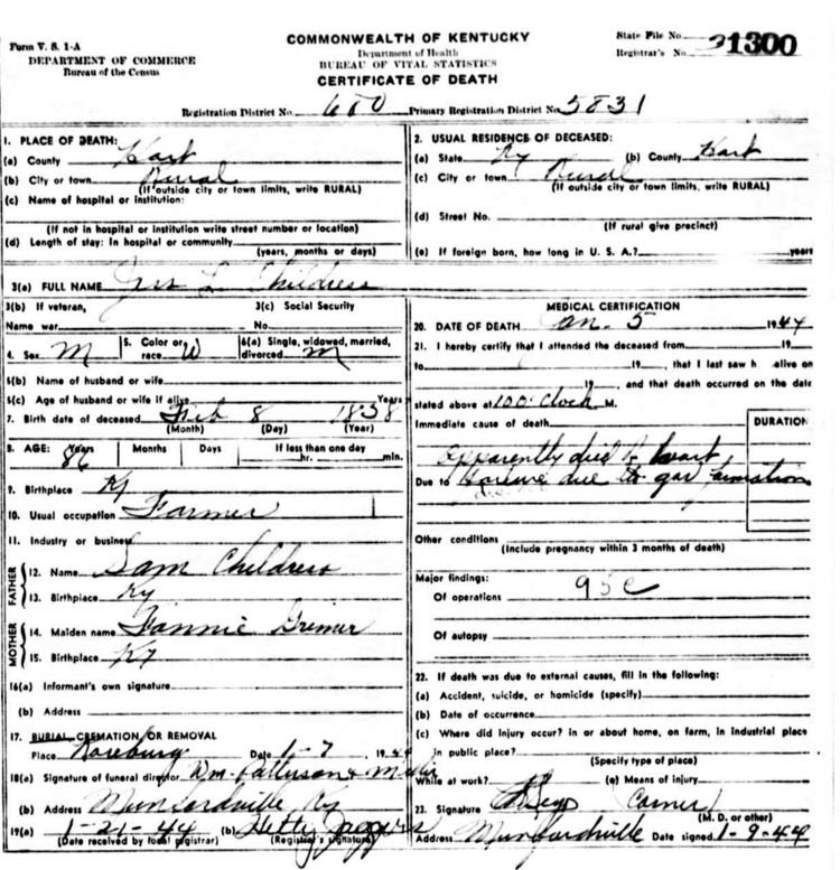 Form V. S. 1-A
DEPARTMENT OF COMMERCE
Bureau of the Census
COMMONWEALTH OF KENTUCKY
Department of Health
BUREAU OF VITAL STATISTICS
CERTIFICATE OF DEATH
State File No.
Registrar's No. 1300
Registration District No. 680 Primary Registration District No. 5831
1. PLACE OF DEATH:
(a) County Hart
(b) City or town Rural
(If outside city or town limits, write RURAL)
(c) Name of hospital or institution:
(If not in hospital or institution write street number or location)
(d) Length of stay: In hospital or community
(years, months or days)
2. USUAL RESIDENCE OF DECEASED:
(a) State Ky (b) County Hart
(c) City or town Rural
(If outside city or town limits, write RURAL)
(d) Street No.
(If rural give precinct)
(e) If foreign born, how long in U. S. A.? years
3(a) FULL NAME L Childress
3(b) If veteran,
Name war
3(c) Social Security
No.
4. Sex M
5. Color or
race W
6(a) Single, widowed, married,
divorced M
6(b) Name of husband or wife
6(c) Age of husband or wife if alive Years
7. Birth date of deceased Feb 8 1858
(Month) (Day) (Year)
8. AGE: Years Months Days If less than one day
86 hr. min.
9. Birthplace Ky
10. Usual occupation Farmer
11. Industry or business
FATHER
12. Name Sam Childress
13. Birthplace Ky
MOTHER
14. Maiden name Fannie
15. Birthplace Ky
16(a) Informant's own signature
(b) Address
17. BURIAL, CREMATION OR REMOVAL
Place Roseburg Date 1-7 1944
18(a) Signature of funeral director Wm.
(b) Address Munfordville Ky
19(a) 1-21-44 (b) Hetty Jaggers
(Date received by local registrar) (Registrar's signature)
MEDICAL CERTIFICATION
20. DATE OF DEATH Jan. 5 1944
21. I hereby certify that I attended the deceased from 19
to 19, that I last saw h alive on
19, and that death occurred on the date
stated above at 1 00 Clock M.
Immediate cause of death
DURATION
Apparently died of heart
Due to failure due to gas formation
Other conditions
(Include pregnancy within 3 months of death)
Major findings:
Of operations 95c
Of autopsy
22. If death was due to external causes, fill in the following:
(a) Accident, suicide, or homicide (specify)
(b) Date of occurrence
(c) Where did injury occur? in or about home, on farm, in industrial place
in public place?
(Specify type of place)
While at work? (e) Means of injury
23. Signature
(M. D. or other)
Address Munfordville Date signed 1-9-44